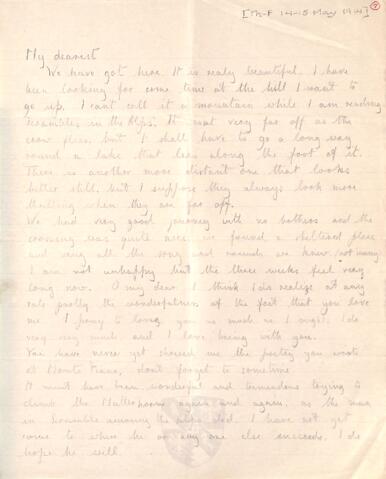 [Th-F 14-15 May 1914]
My dearest
We have got here. It is really beautiful. I have
been looking for some time at the hill I want to
go up, I can't call it a mountain while I am reading
Scrambles in the Alps. It isnt very far off as the
crow flies but I shall have to go a long way
round a lake that lies along the foot of it.
There is another more distant one that looks
better still, but I suppose they always look more
thrilling when they are far off.
We had very good journey with no bothers and the
crossing was quite nice. we found a sheltered place
and sang all the songs and rounds we knew (not many)
I am not unhappy but the three weeks feel very
long now. O my dear I think I do realise at any
rate partly the wonderfulness of the fact that you love
me. I pray to love you as much as I ought. I do
very very much and I love being with you.
You have never yet showed me the poetry you wrote
at Monte Fiano, dont forget to sometime
It must have been wonderful and tremendous trying to
climb the Matterhorn again and again, as the man
in Scrambles among the Alps did. I have not yet
come to where he or any one else succeeds. I do
hope he will.